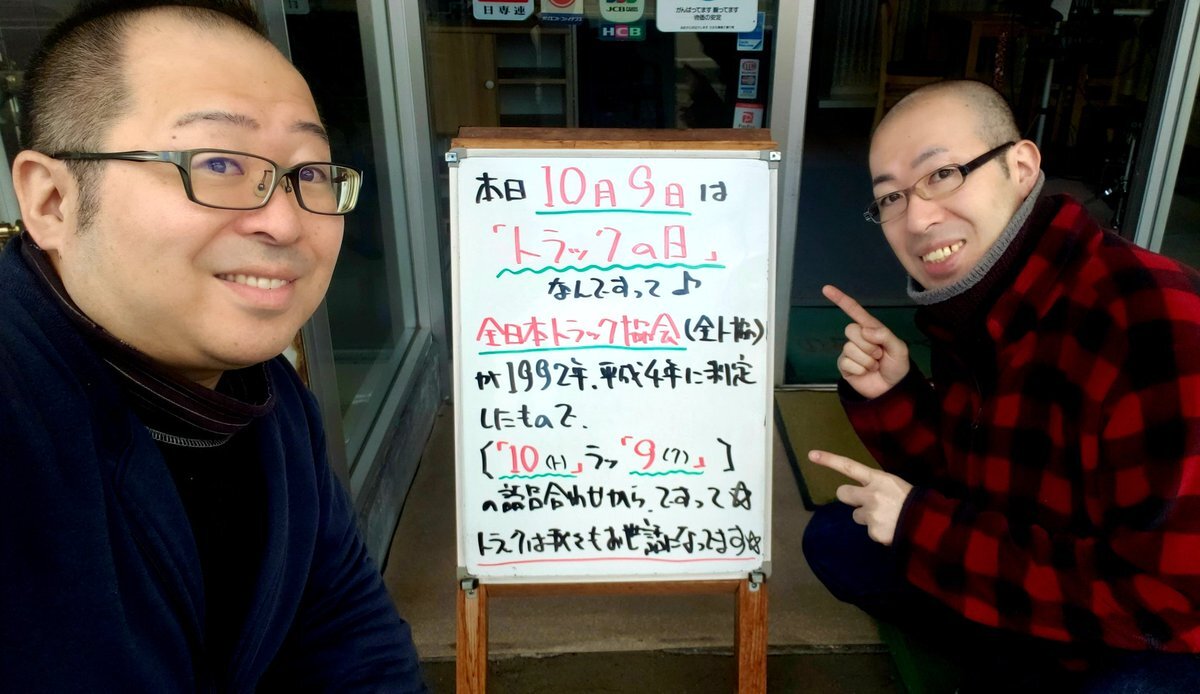 日専連
JCB CARDS
HCB
がんばってます 握ってます
物価の安定
本日 10月9日は
「トラックの日」
なんですって♪
全日本トラック協会(全ト協)
が1992年、平成4年に制定
したもので、
[「10(ト)」ラッ「9(ク)」]
の語呂合わせから、ですって☆
トラックは我々もお世話になってます☆